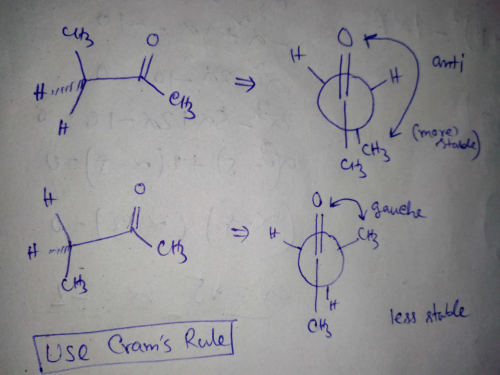 CH3 O
H
H CH3
⇒
O
H H
anti
(more stable)
CH3 CH3
H O
H
CH3 CH3
⇒
O gauche
H CH3
H
CH3
less stable
USE Cram's Rule